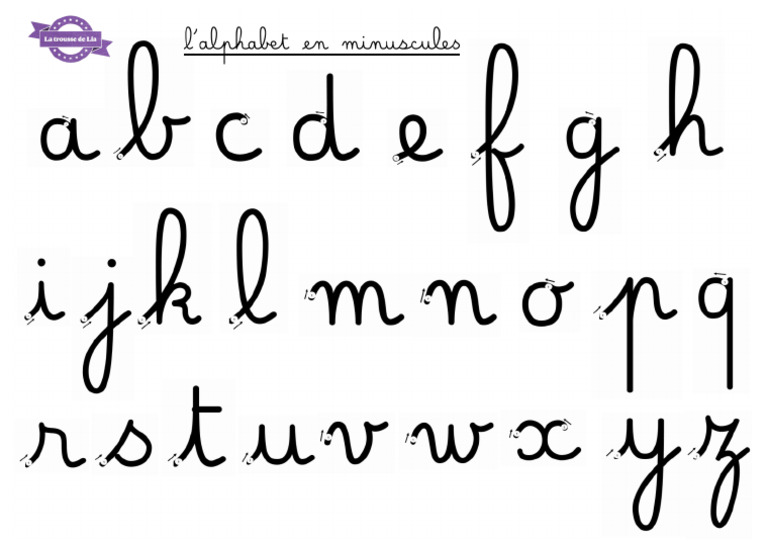 La trousse de Lia
l'alphabet en minuscules
a b c d e f g h
i j k l m n o p q
r s t u v w x y z